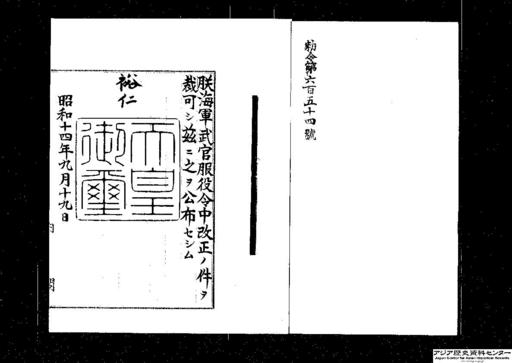 勅令第六百五十四號
朕海軍武官服役令中改正ノ件ヲ
裁可シ茲ニ之ヲ公布セシム
裕仁
天皇
御璽
昭和十四年九月十九日
アジア歴史資料センター
Japan Center for Asian Historical Records